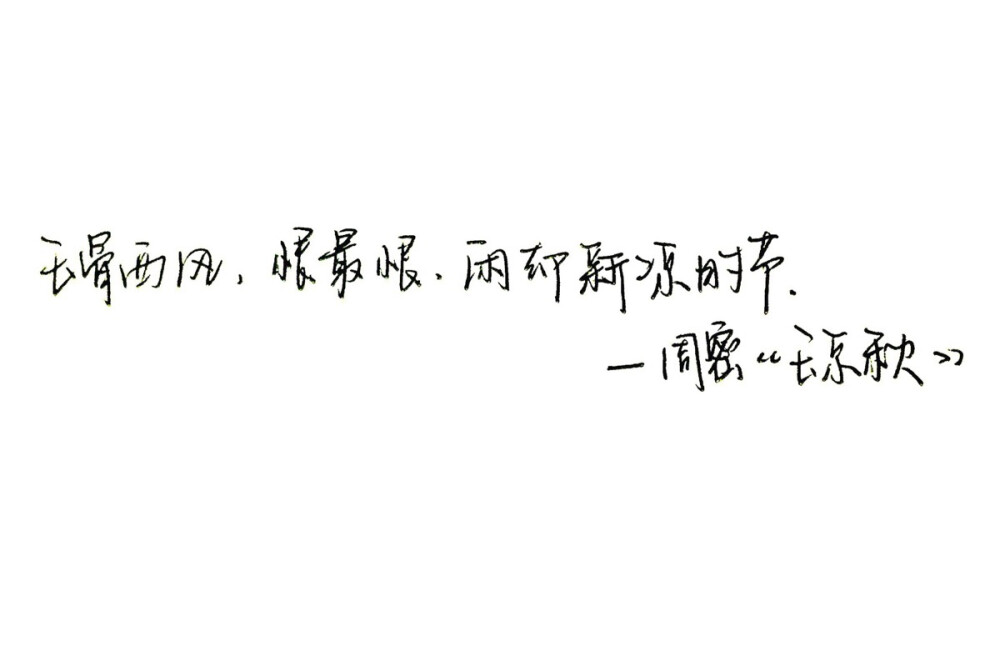 玉骨西风，恨最恨、闲却新凉时节。
—周密《玉京秋》